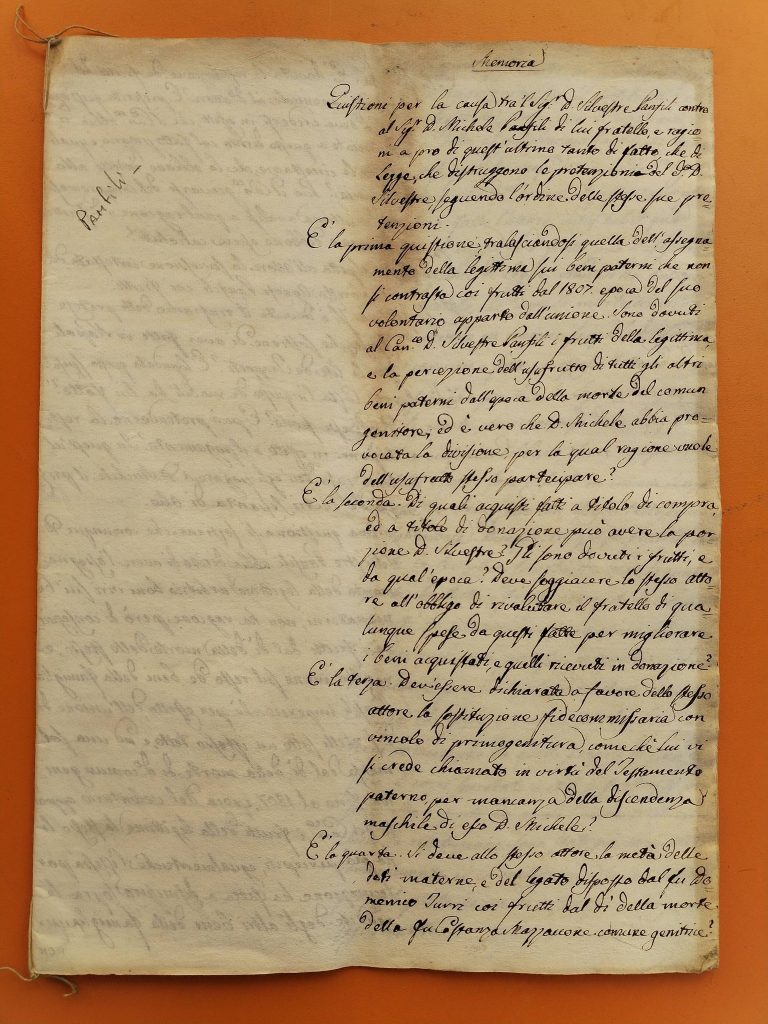 Memoria
Quistioni per la causa tra'l Sig.r D. Silvestre Panfili contro
al Sig.r D. Michele Panfili di lui fratello, e ragio
ni a pro di quest'ultimo tanto di fatto, che di
Legge, che distruggono le pretenzioni del d.o D.
Silvestre, seguendo l'ordine delle stesse sue pre-
tenzioni.
E' la prima quistione, tralasciandosi quella dell'assegna-
mento della legittima sui beni paterni che non
si contrasta coi frutti dal 1807. epoca del suo
volontario apparto dall'unione. Sono dovuti
al Can.co D. Silvestre Panfili i frutti della legittima,
e la percezione dell'usufrutto di tutti gli altri
beni paterni dall'epoca della morte del comun
genitore; ed è vero che D. Michele abbia pro-
vocata la divisione, per la qual ragione vuole
dell'usufrutto stesso partecipare?
E' la seconda. Di quali acquisti fatti a titolo di compra,
ed a titolo di donazione può avere la por-
zione D. Silvestre? Gli sono dovuti i frutti, e
da qual'epoca? Deve soggiacere lo stesso atto-
re all'obbligo di rivalutare il fratello di qua-
lunque spese da questi fatte per migliorare
i beni acquistati, e quelli ricevuti in donazione?
E' la terza. Dev'essere dichiarata a favore dello stesso
attore la sostituzione fidecommissaria con
vincolo di primogenitura, comechè lui vi
si crede chiamato in virtù del Testamento
paterno, per mancanza della discendenza
maschile di esso D. Michele?
E' la quarta. Si deve allo stesso attore la metà delle
doti materne, e del legato disposto dal fu Do-
menico Turri coi frutti dal dì della morte
della fu Costanza Mazzacone comune genitrice?
Panfili